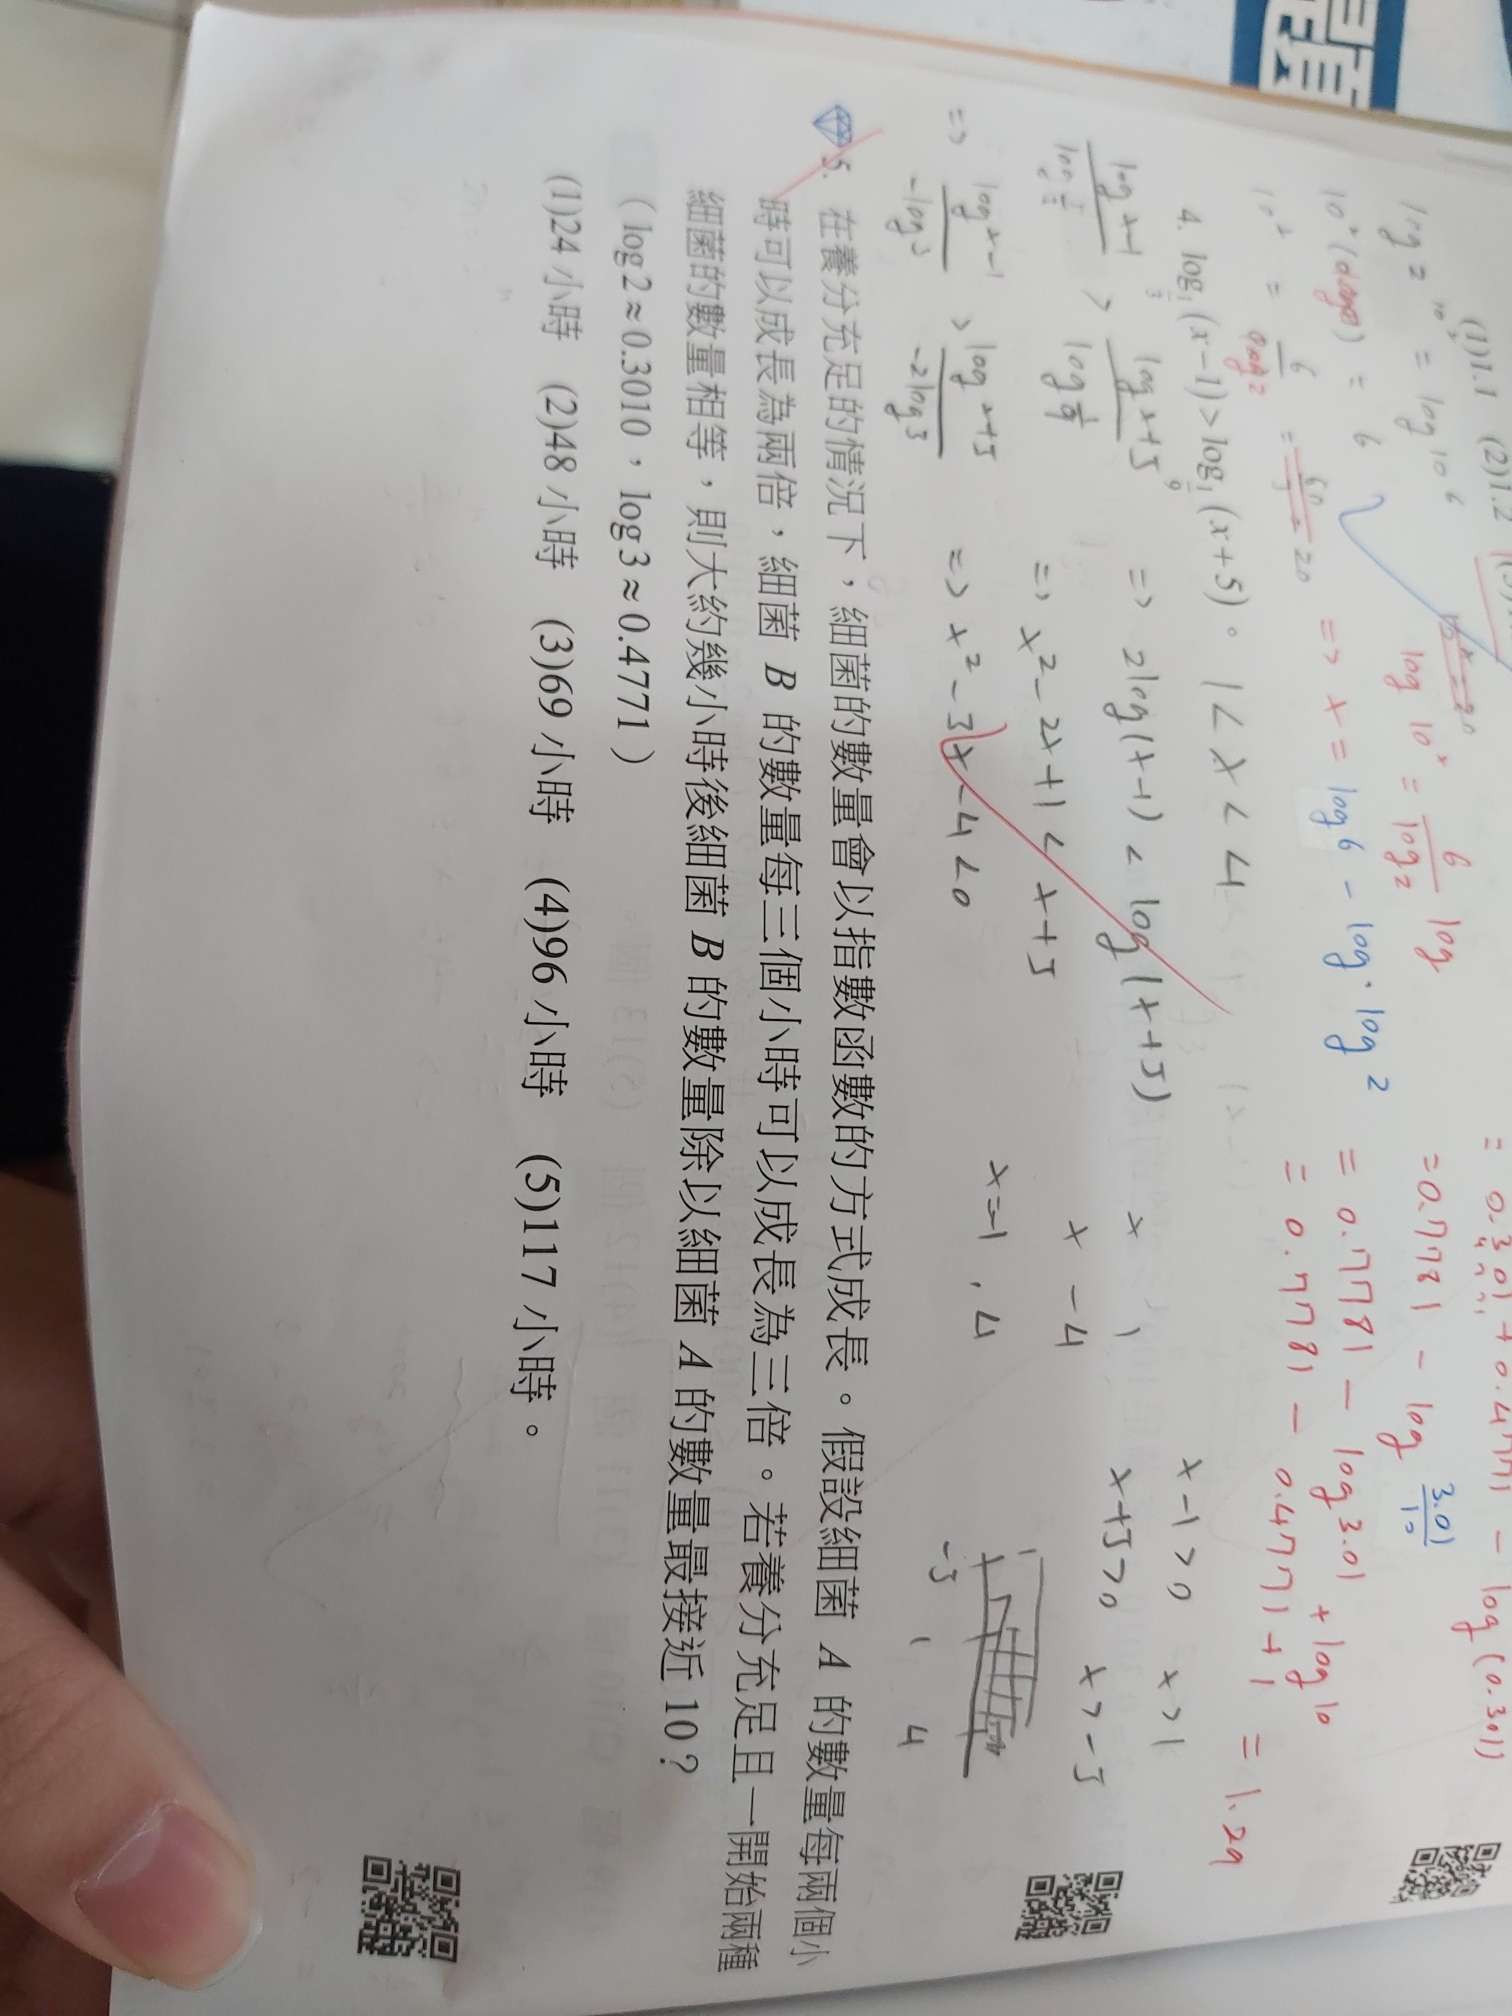 (1)1.1 (2)1.2
= 0.301 + 0.4771 - log(0.301)
log 2^10^x = log 10^6
log 10^x = 6/log2 log
= 0.7781 - log 3.01/10
10^x(log2) = 6
=> x = log6 - log·log2
= 0.7781 - log3.01 + log10
10^x = 6/log2
= 0.7781 - 0.4771 + 1 = 1.29
4. log_{1/3}(x-1)>log_{1/9}(x+5)。 1<x<4
x-1>0 x>1
log x-1/log 1/3 > log x+5/log 1/9 => 2log(x-1) < log(x+5)
x 1
x+5>0 x>-5
=> x²-2x+1 < x+5
x -4
=> log x-1/-log3 > log x+5/-2log3 => x²-3x-4<0
x=-1, 4
-5 1 4
5. 在養分充足的情況下，細菌的數量會以指數函數的方式成長。假設細菌 A 的數量每兩個小
時可以成長為兩倍，細菌 B 的數量每三個小時可以成長為三倍。若養分充足且一開始兩種
細菌的數量相等，則大約幾小時後細菌 B 的數量除以細菌 A 的數量最接近 10？
（log2≈0.3010，log3≈0.4771）
(1)24 小時 (2)48 小時 (3)69 小時 (4)96 小時 (5)117 小時。